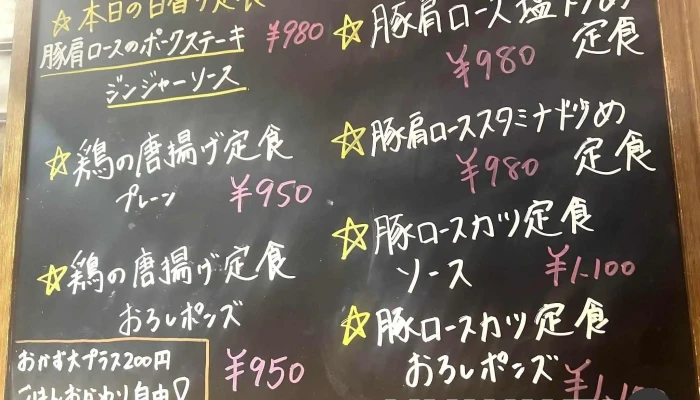 ☆本日の日替り定食
豚肩ロースのポークステーキ ¥980
ジンジャーソース
☆鶏の唐揚げ定食
プレーン ¥950
☆鶏の唐揚げ定食
おろしポンズ
¥950
おかず大プラス200円
ごはんおかわり自由♡
☆豚肩ロース塩炒め
定食
¥980
☆豚肩ローススタミナ炒め
定食
¥980
☆豚ロースカツ定食
ソース ¥1.100
☆豚ロースカツ定食
おろしポンズ